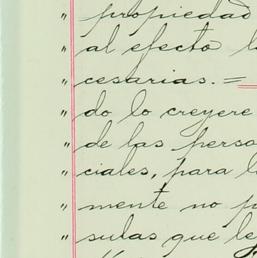 " propiedad
" al efecto
" cesarias.=
" do lo creyere
" de las perso
" ciales, para l
" mente no p
" sulas que le